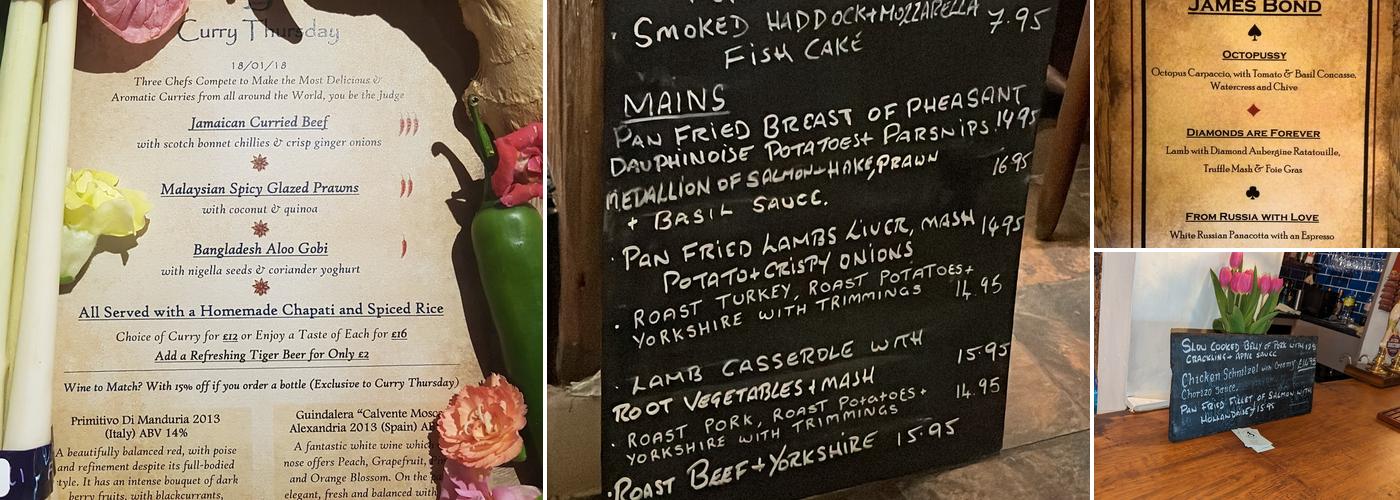 Curry Thursday
18/01/18
Three Chefs Compete to Make the Most Delicious &
Aromatic Curries from all around the World, you be the Judge
Jamaican Curried Beef
with scotch bonnet chillies & crisp ginger onions
Malaysian Spicy Glazed Prawns
with coconut & quinoa
Bangladesh Aloo Gobi
with nigella seeds & coriander yoghurt
All Served with a Homemade Chapati and Spiced Rice
Choice of Curry for £12 or Enjoy a Taste of Each for £16
Add a Refreshing Tiger Beer for Only £2
Wine to Match? With 15% off if you order a bottle (Exclusive to Curry Thursday)
Primitivo Di Manduria 2013
(Italy) ABV 14%
A beautifully balanced red, with poise
and refinement despite its full-bodied
style. It has an intense bouquet of dark
berry fruits, with blackcurrants,
Guindalera "Calvente
Alexandria 2013 (Spain)
A fantastic white wine which
nose offers Peach, Grapefruit,
and Orange Blossom. On the
elegant, fresh and balanced with
· SMOKED HADDOCK+MOZZARELLA 7.95
FISH CAKE
MAINS
PAN FRIED BREAST OF PHEASANT
DAUPHINOISE POTATOES+ PARSNIPS. 14.95
MEDALLION OF SALMON+HAKE, PRAWN 16.95
+ BASIL SAUCE.
· PAN FRIED LAMBS LIVER, MASH 14.95
POTATO+CRISPY ONIONS
· ROAST TURKEY, ROAST POTATOES+ 14.95
YORKSHIRE WITH TRIMMINGS
· LAMB CASSEROLE WITH 15.95
ROOT VEGETABLES+MASH
· ROAST PORK, ROAST POTATOES+ 14.95
YORKSHIRE WITH TRIMMINGS
·ROAST BEEF+YORKSHIRE 15.95
JAMES BOND
OCTOPUSSY
Octopus Carpaccio, with Tomato & Basil Concasse,
Watercress and Chive
DIAMONDS ARE FOREVER
Lamb with Diamond Aubergine Ratatouille,
Truffle Mash & Foie Gras
FROM RUSSIA WITH LOVE
White Russian Panacotta with an Espresso
SLOW COOKED BELLY OF PORK WITH
CRACKLING + APPLE SAUCE
Chicken Schnitzel with Creamy
Chorizo Sauce
PAN FRIED FILLET OF SALMON WITH
HOLLANDAISE 15.95